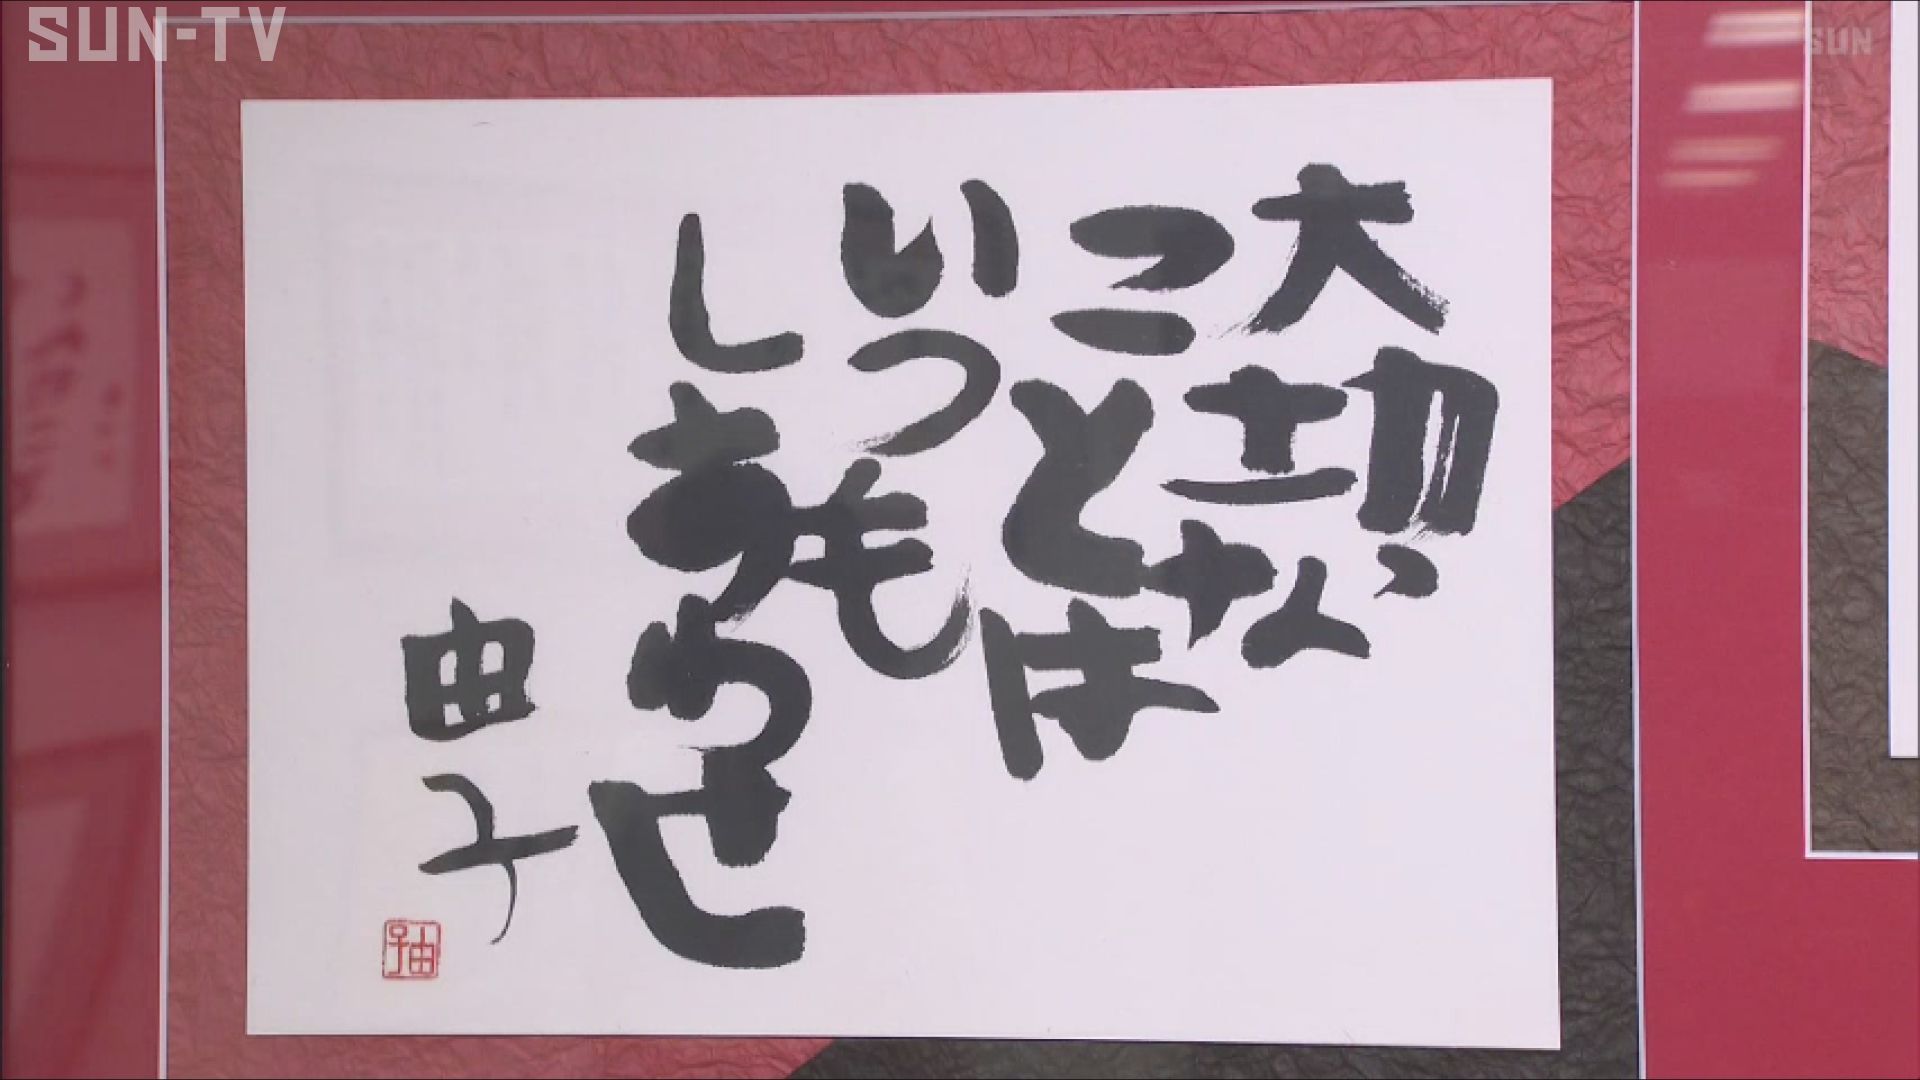 SUN-TV
SUN
大切な
ことは
いつも
しあわせ
由子
由子